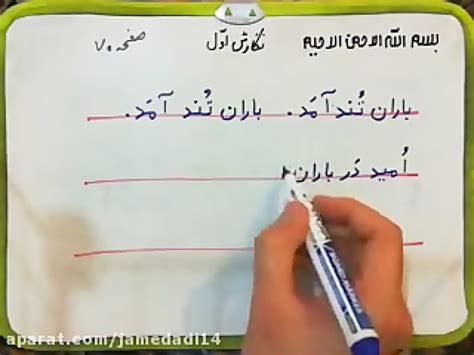 بسم الله الرحمن الرحیم نگارش اوّل صفحه ۷۰
باران تُند آمَد. باران تُند آمَد.
اُمید دَر باران
aparat.com/jamedadi14